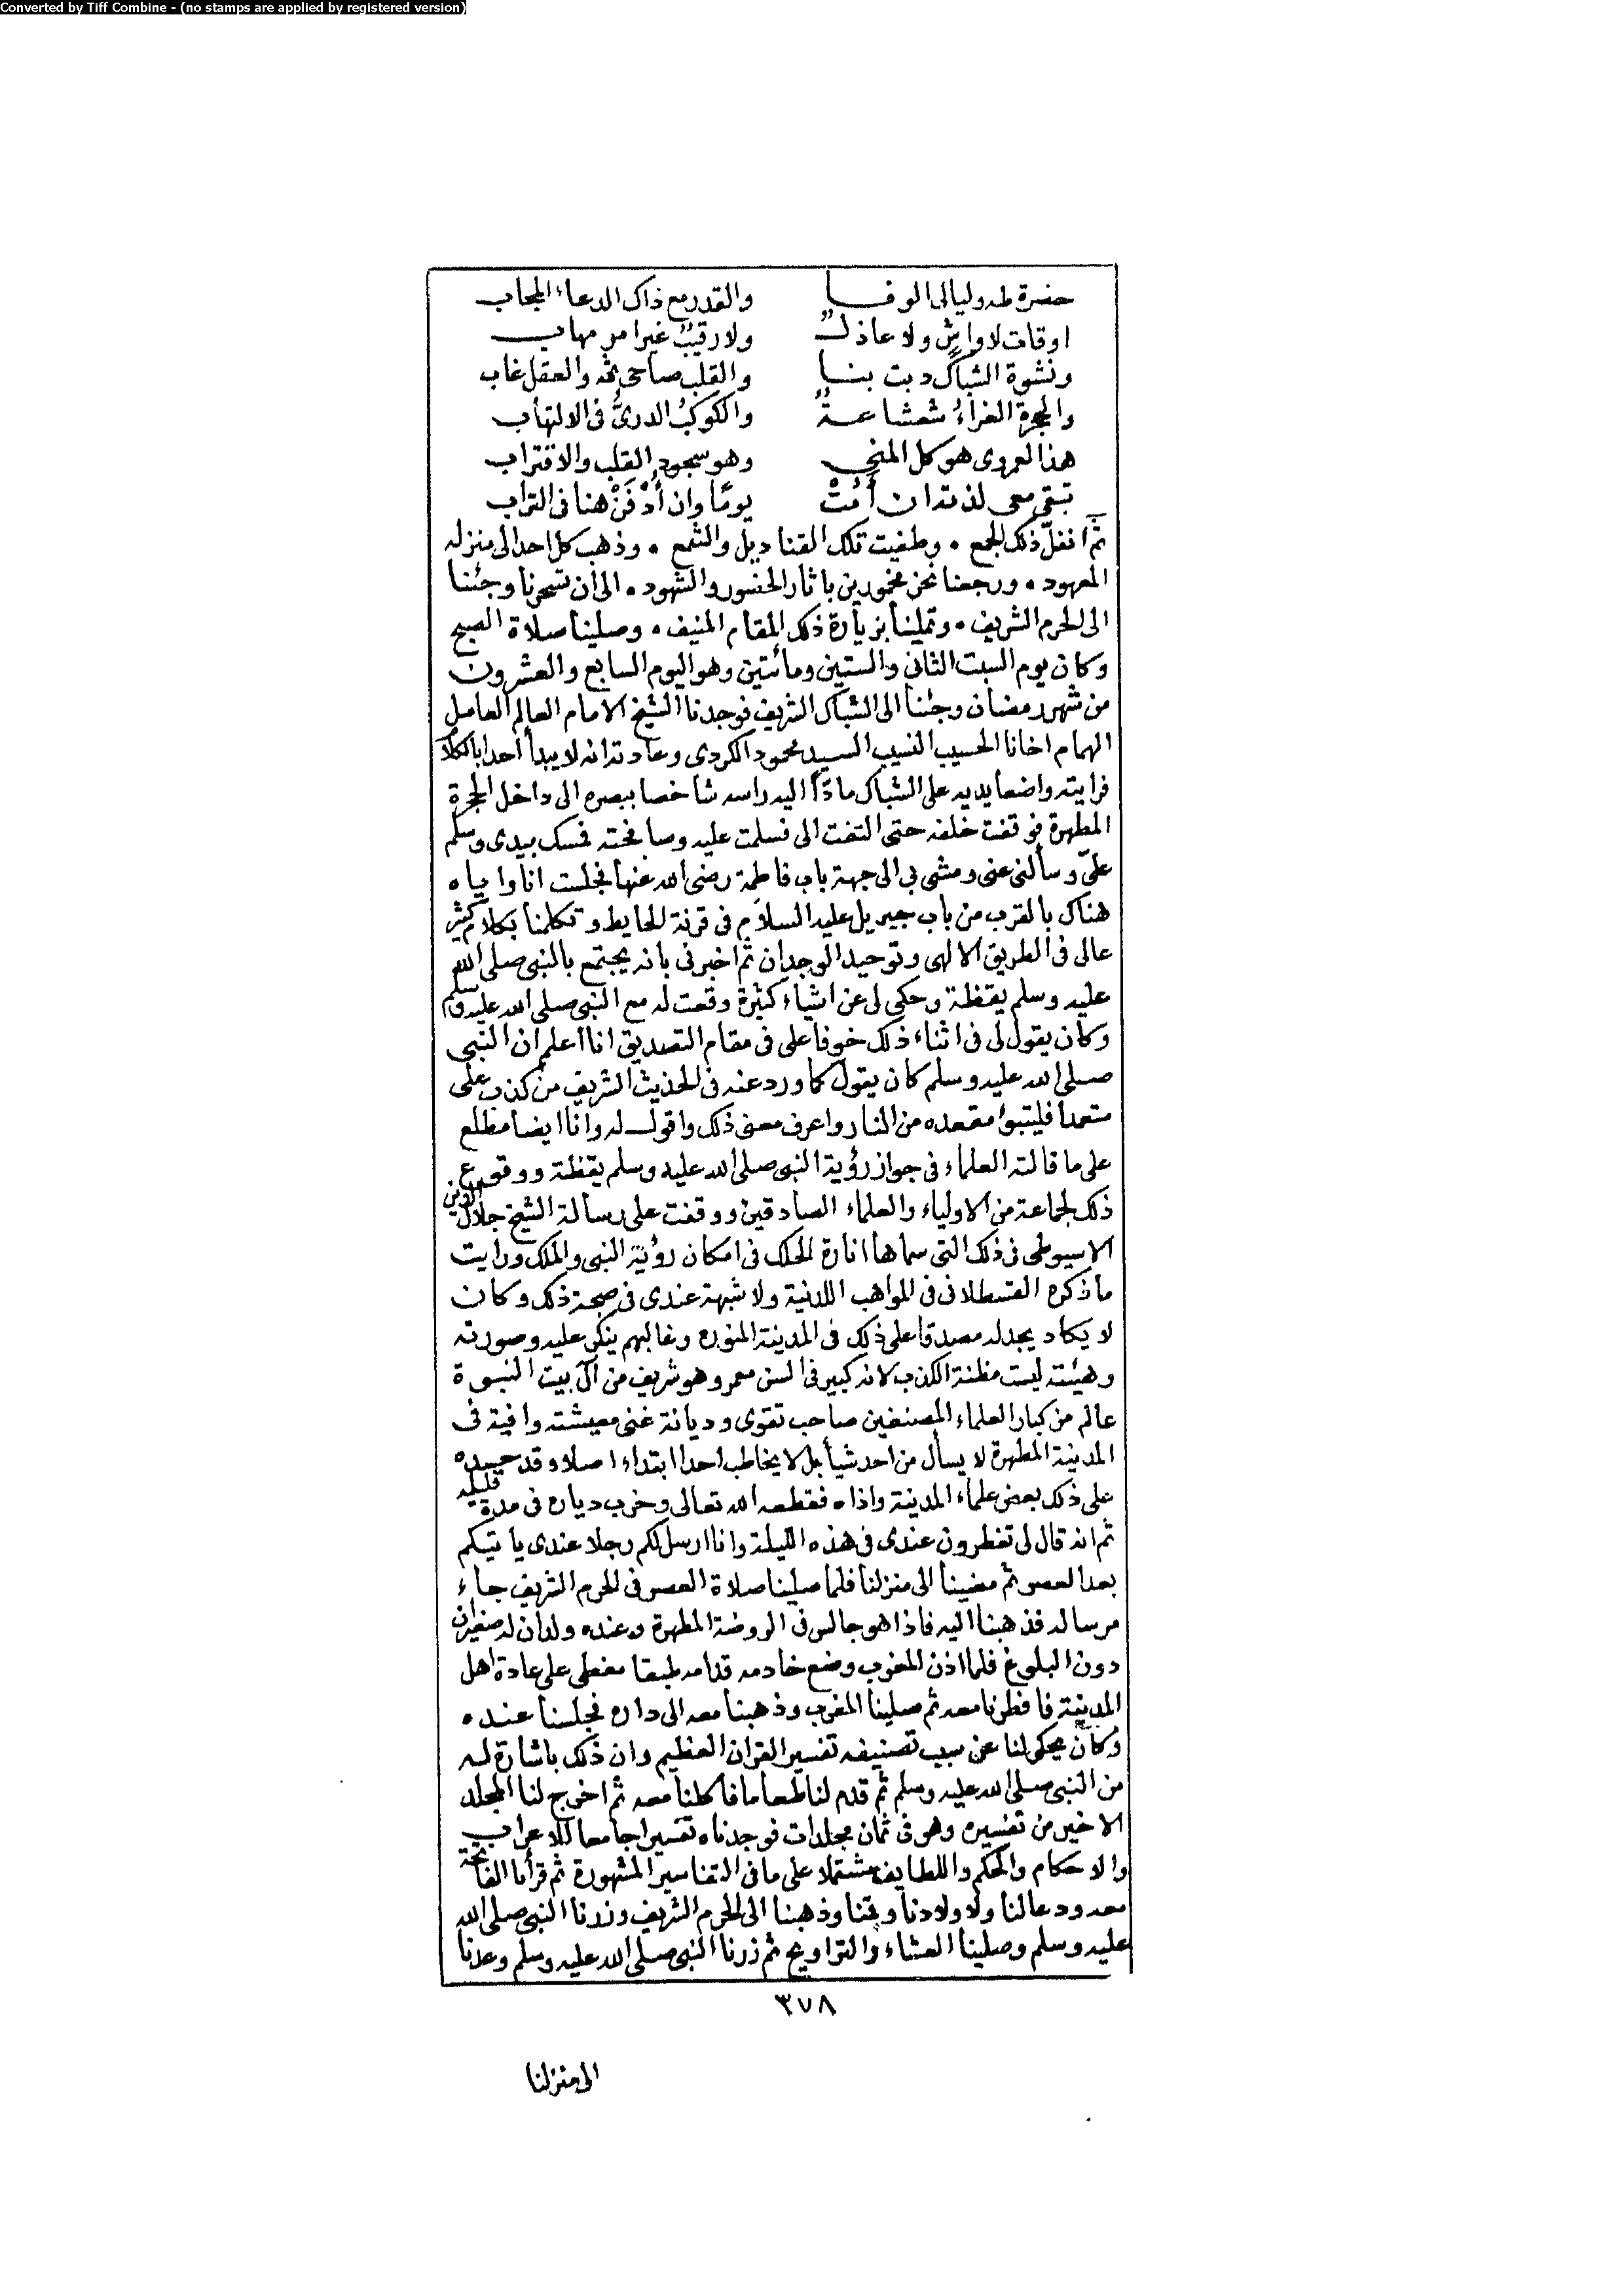 Converted by Tiff Combine - (no stamps are applied by registered version)
حضرة طه وليالي الوفا والقدر مع ذاك الدعاء المجاب
اوقات لا واشٍ ولا عاذلٌ ولا رقيبٌ غير امر مهاب
ونشوة الشباك دبت بنا والقلب صاحى ثمه والعقل غاب
والحجرة الغراءُ شعشاعةٌ والكوكبُ الدرىُّ فى الالتهاب
هذا لعمروى هو كل المنى وهو سجود القلب والاقتراب
تبقى معى لذته ان أمُتْ يومًا وان أُدْفَنْ هنا فى التراب
ثم انفلّ ذلك الجمع • وطفيت تلك القناديل والشمع • وذهب كل احد الى منزله
المعهود • ورجعنا نحن مخمورين باثار الحضور والشهود • الى أن تسحرنا وجئنا
الى الحرم الشريف • وتملينا بزيارة ذلك المقام المنيف • وصلينا صلاة الصبح
وكان يوم السبت الثانى والستين ومائتين وهو اليوم السابع والعشرون
من شهر رمضان وجئنا الى الشباك الشريف فوجدنا الشيخ الامام العالم العامل
الهمام اخانا الحسيب النسيب السيد محمود الكردى وعادته انه لا يبدأ أحدا بالكلام
فرايته واضعا يديه على الشباك مادّا اليه راسه شاخصا ببصره الى داخل الحجرة
المطهرة فوقفت خلفه حتى التفت الى فسلمت عليه وصافحته فمسك بيدى وسلم
علىّ وسألنى عنى ومشى بى الى جهة باب فاطمة رضى الله عنها فجلست انا واياه
هناك بالقرب من باب جبريل عليه السلام فى قرنة الحايط وتكلمنا بكلام كثير
عالى فى الطريق الالهى وتوحيد الوجدان ثم اخبرنى بانه يجتمع بالنبى صلى الله
عليه وسلم يقظة وحكى لى عن اشياء كثيرة وقعت له مع النبى صلى الله عليه وسلم
وكان يقول لى فى اثناء ذلك خوفا على فى مقام التصديق انا اعلم ان النبى
صلى الله عليه وسلم كان يقول كما ورد عنه فى الحديث الشريف من كذب على
متعمدا فليتبوا مقعده من النار واعرف معنى ذلك واقول له وانا ايضا مطلع
على ما قالته العلماء فى جواز رؤية النبى صلى الله عليه وسلم يقظة ووقوع
ذلك لجماعة من الاولياء والعلماء الصادقين ووقفت على رسالة الشيخ جلال الدين
الاسيوطى فى ذلك التى سماها انارة الحلك فى امكان رؤية النبى والملك ورايت
ما ذكره القسطلانى فى المواهب اللدنية ولا شبهة عندى فى صحة ذلك وكان
لا يكاد يجد له مصدقا على ذلك فى المدينة المنوره وغالبهم ينكر عليه وصورته
وهيئته ليست مظنة الكذب لانه كبير فى السن معمر وهو شريف من آل بيت النبوة
عالم من كبار العلماء المصنفين صاحب تقوى وديانة غنى معيشته وافية فى
المدينة المطهرة لا يسأل من احد شيأ بل لا يخاطب احدا ابتداء اصلا وقد حسده
على ذلك بعض علماء المدينة واذاه فقطعه الله تعالى وخرب دياره فى مدة قليله
ثم انه قال لى تفطرون عندى فى هذه الليلة وانا ارسل لكم رجلا عندى ياتيكم
بعد العصر ثم مضينا الى منزلنا فلما صلينا صلاة العصر فى الحرم الشريف جاء
مرساله فذهبنا اليه فاذا هو جالس فى الروضة المطهرة وعنده ولدان له صغيران
دون البلوغ فلما اذن المغرب وضع خادمه قدامه طبقا مغطى على عادة اهل
المدينة فافطرنا معه ثم صلينا المغرب وذهبنا معه الى داره فجلسنا عنده
وكان يحكى لنا عن سبب تصنيفه تفسير القران العظيم وان ذلك باشارة له
من النبى صلى الله عليه وسلم ثم قدم لنا طعاما فاكلنا معه ثم اخرج لنا المجلد
الاخير من تفسيره وهو فى ثمان مجلدات فوجدناه تفسيرا جامعا للاعراب
والاحكام والحكم واللطايف مشتملا على ما فى التفاسير المشهورة ثم قرأنا الفاتحة
معه ودعا لنا ولاولادنا وقمنا وذهبنا الى الحرم الشريف وزرنا النبى صلى الله
عليه وسلم وصلينا العشاء والتراويح ثم زرنا النبى صلى الله عليه وسلم وعدنا
٣٧٨
الى منزلنا